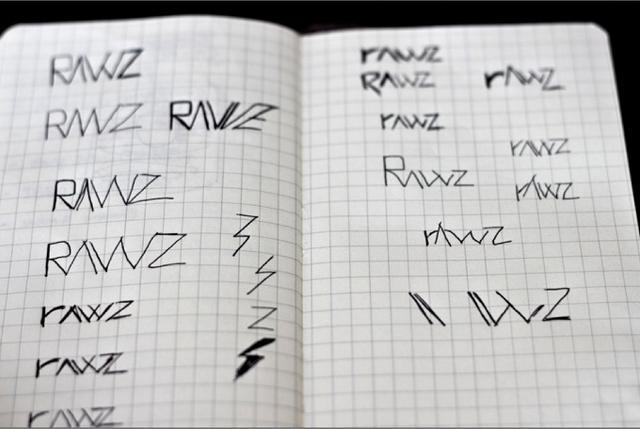 RAWZ
RAWZ RAWZ
RAWZ
RAWZ
rAWZ
Z
rAWZ
rAWZ
rAWZ
RAWZ rAWZ
rAWZ
rAWZ
RAWZ rAWZ
rAWZ
WZ